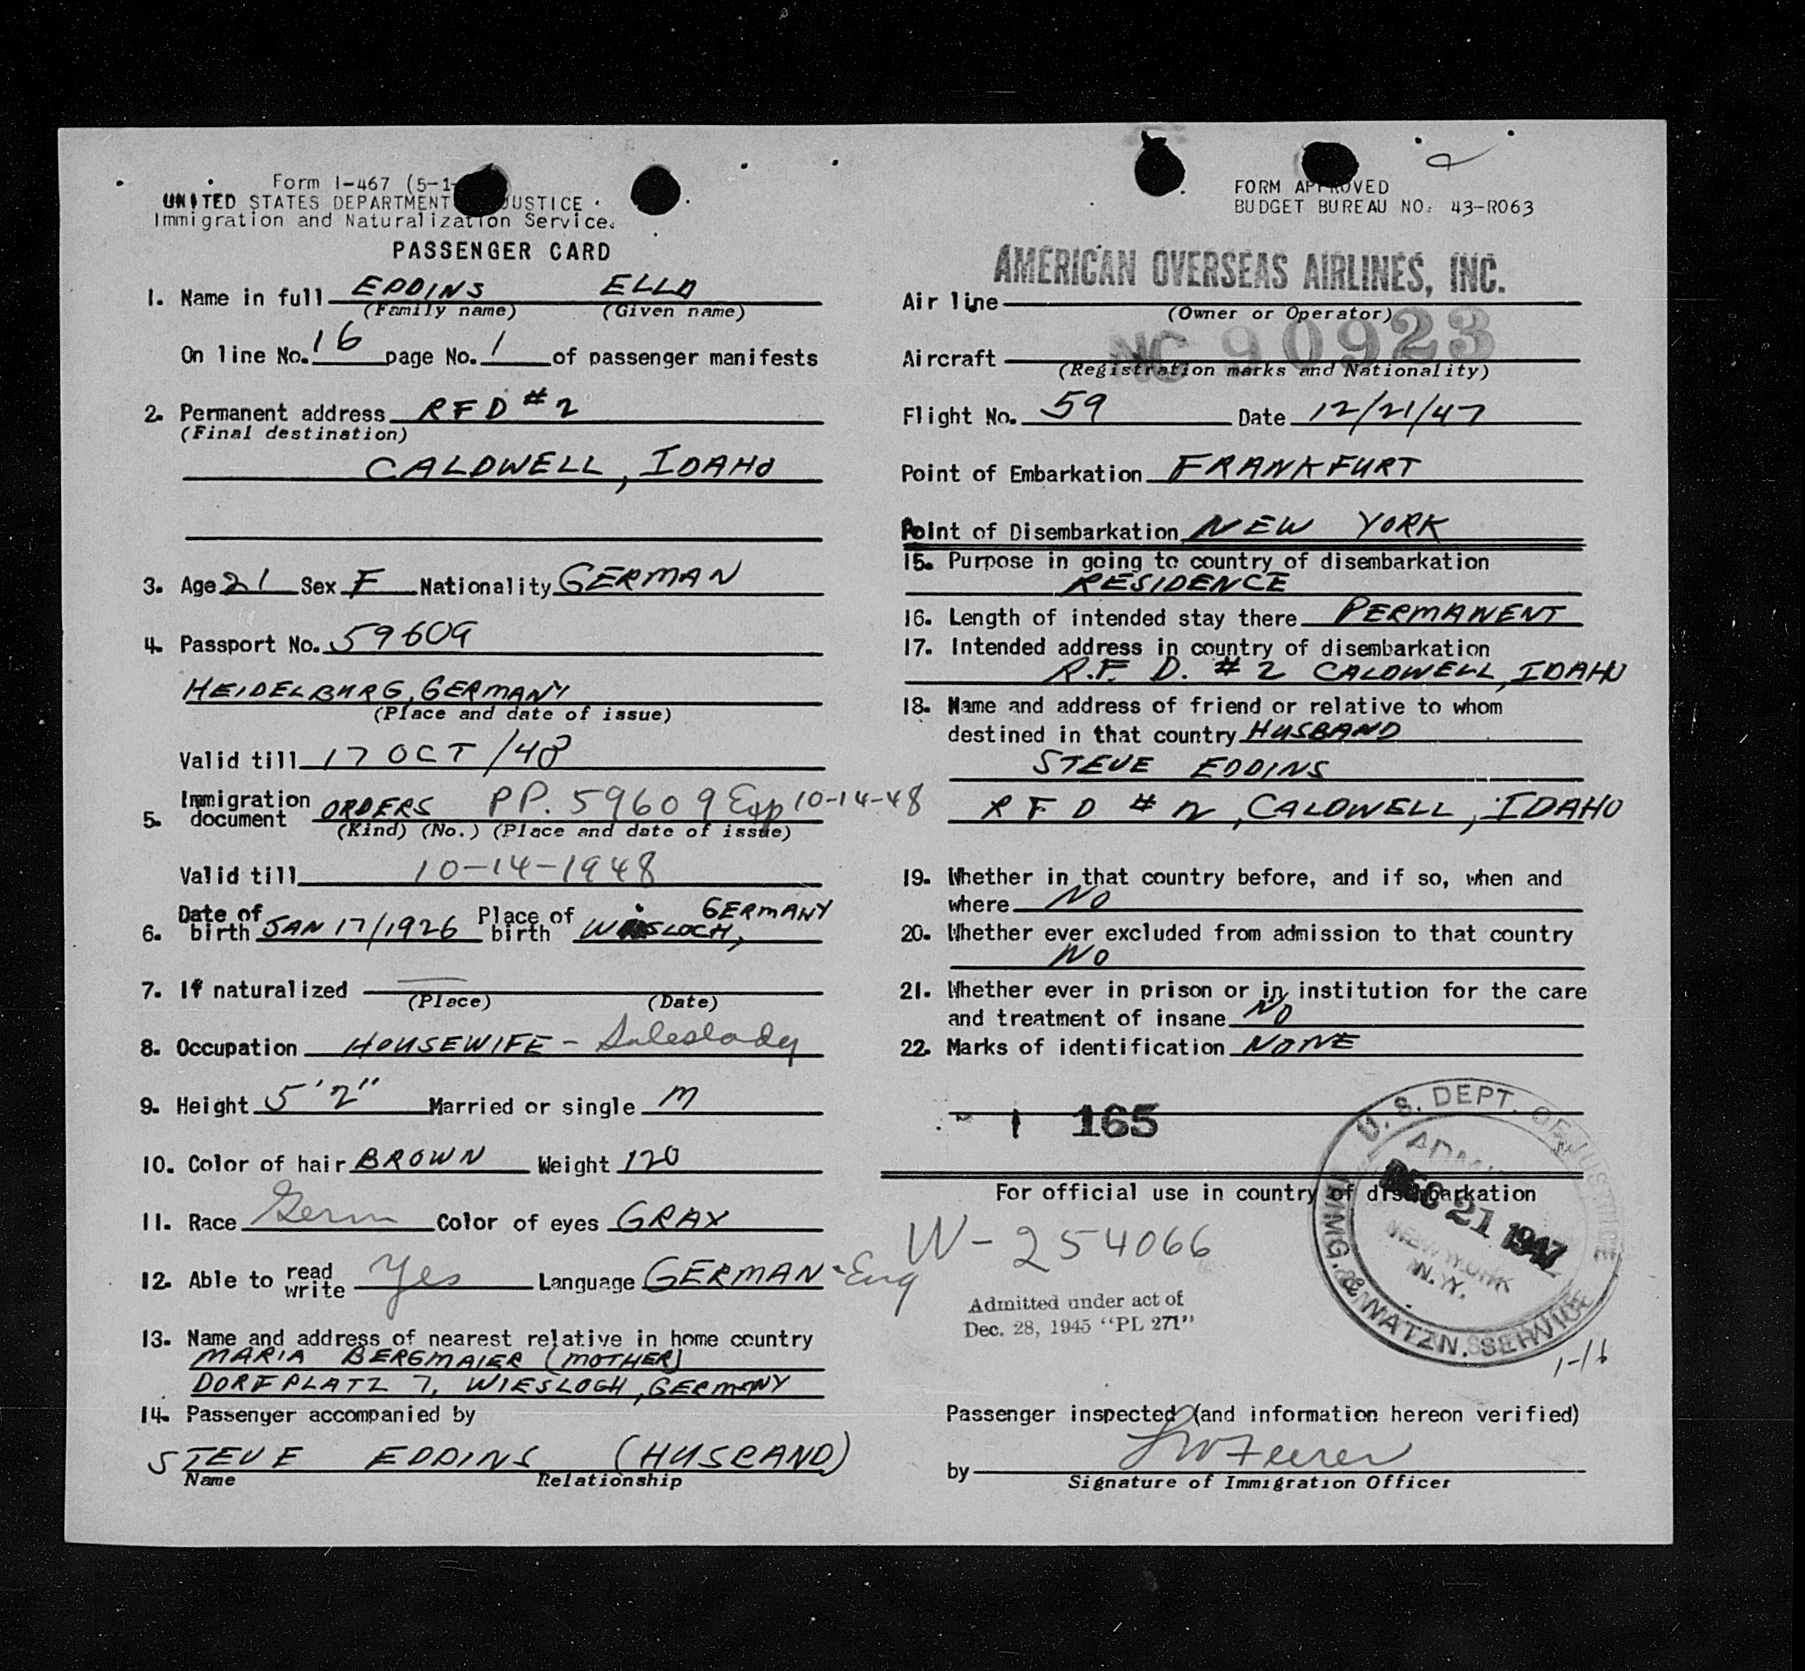 Form I-467 (5-1-
UNITED STATES DEPARTMENT JUSTICE
Immigration and Naturalization Service.
PASSENGER CARD
1. Name in full EDDINS ELLA
(Family name) (Given name)
On line No. 16 page No. 1 of passenger manifests
2. Permanent address RFD #2
(Final destination)
CALDWELL, IDAHO
3. Age 21 Sex F Nationality GERMAN
4. Passport No. 59609
HEIDELBURG, GERMANY
(Place and date of issue)
Valid till 17 OCT/48
5. Immigration document ORDERS PP. 59609 Exp 10-14-48
(Kind) (No.) (Place and date of issue)
Valid till 10-14-1948
6. Date of birth JAN 17/1926 Place of birth WIESLOCH, GERMANY
7. If naturalized —
(Place) (Date)
8. Occupation HOUSEWIFE - Saleslady
9. Height 5'2" Married or single M
10. Color of hair BROWN Weight 120
11. Race Germ Color of eyes GRAY
12. Able to read write Yes Language GERMAN - Eng
13. Name and address of nearest relative in home country
MARIA BERGMAIER (MOTHER)
DORFPLATZ 7, WIESLOCH, GERMANY
14. Passenger accompanied by
STEVE EDDINS (HUSBAND)
Name Relationship
FORM APPROVED
BUDGET BUREAU NO. 43-R063
AMERICAN OVERSEAS AIRLINES, INC.
Air line
(Owner or Operator)
Aircraft NC 90923
(Registration marks and Nationality)
Flight No. 59 Date 12/21/47
Point of Embarkation FRANKFURT
Point of Disembarkation NEW YORK
15. Purpose in going to country of disembarkation
RESIDENCE
16. Length of intended stay there PERMANENT
17. Intended address in country of disembarkation
R.F.D. #2 CALDWELL, IDAHO
18. Name and address of friend or relative to whom
destined in that country HUSBAND
STEVE EDDINS
RFD #2, CALDWELL, IDAHO
19. Whether in that country before, and if so, when and
where NO
20. Whether ever excluded from admission to that country
NO
21. Whether ever in prison or in institution for the care
and treatment of insane NO
22. Marks of identification NONE
1 165
For official use in country of disembarkation
W-254066
Admitted under act of
Dec. 28, 1945 "PL 271"
U.S. DEPT. OF JUSTICE
ADMITTED
DEC 21 1947
NEW YORK
N.Y.
IMMG. & NATZN. SERVICE
1-16
Passenger inspected (and information hereon verified)
by
Signature of Immigration Officer